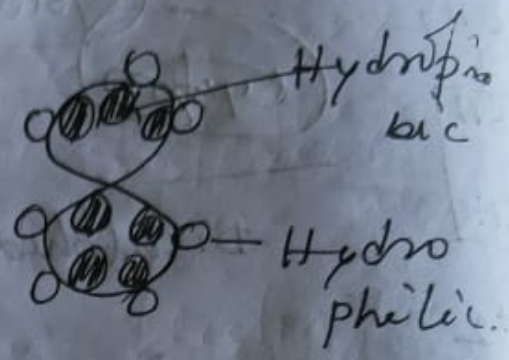 Hydropho
bic
Hydro
philic.